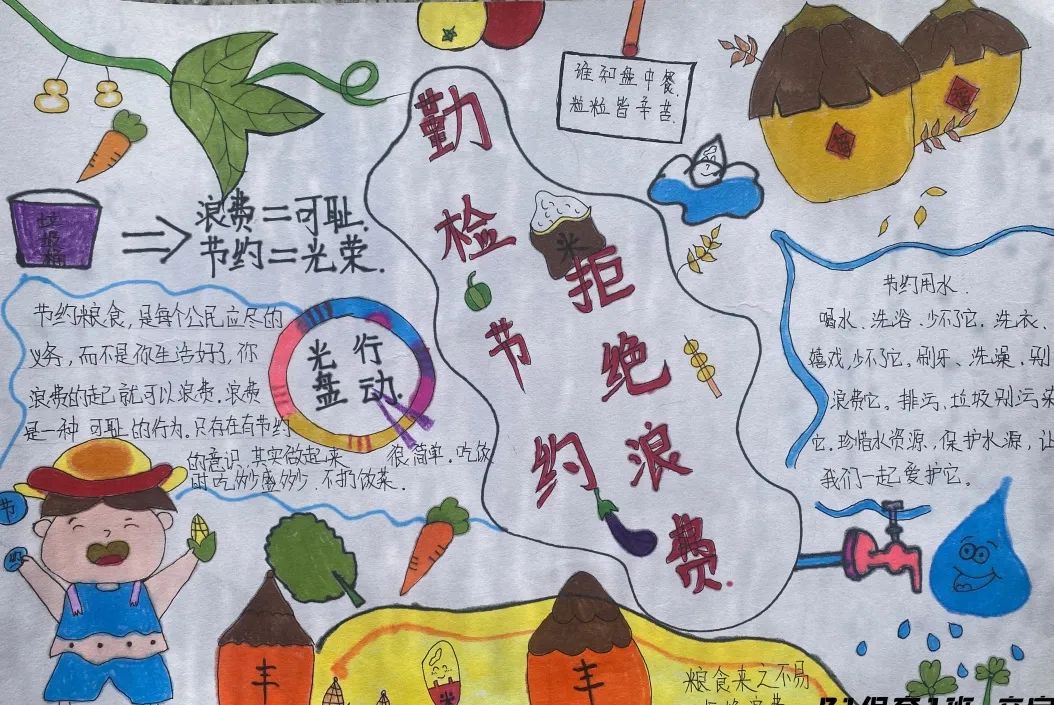 勤检节约
拒绝浪费.
谁和盘中餐.
粒粒皆辛苦.
福
福
垃圾桶
浪费=可耻.
节约=光荣.
米
节约粮食,是每个公民应尽的
义务,而不是你生活好了,你
浪费的起就可以浪费.浪费
是一种 可耻的行为.只存在有节约
的意识.其实做起来 很简单.吃饭
时吃多少盛多少.不扔饭菜.
光盘
行动.
节约用水.
喝水、洗浴、少不了它.洗衣、
嬉戏,少不了它.刷牙、洗澡、别
浪费它。排污、垃圾别污染
它.珍惜水资源,保护水源,让
我们一起爱护它。
节
约
丰
丰
米
粮食来之不易